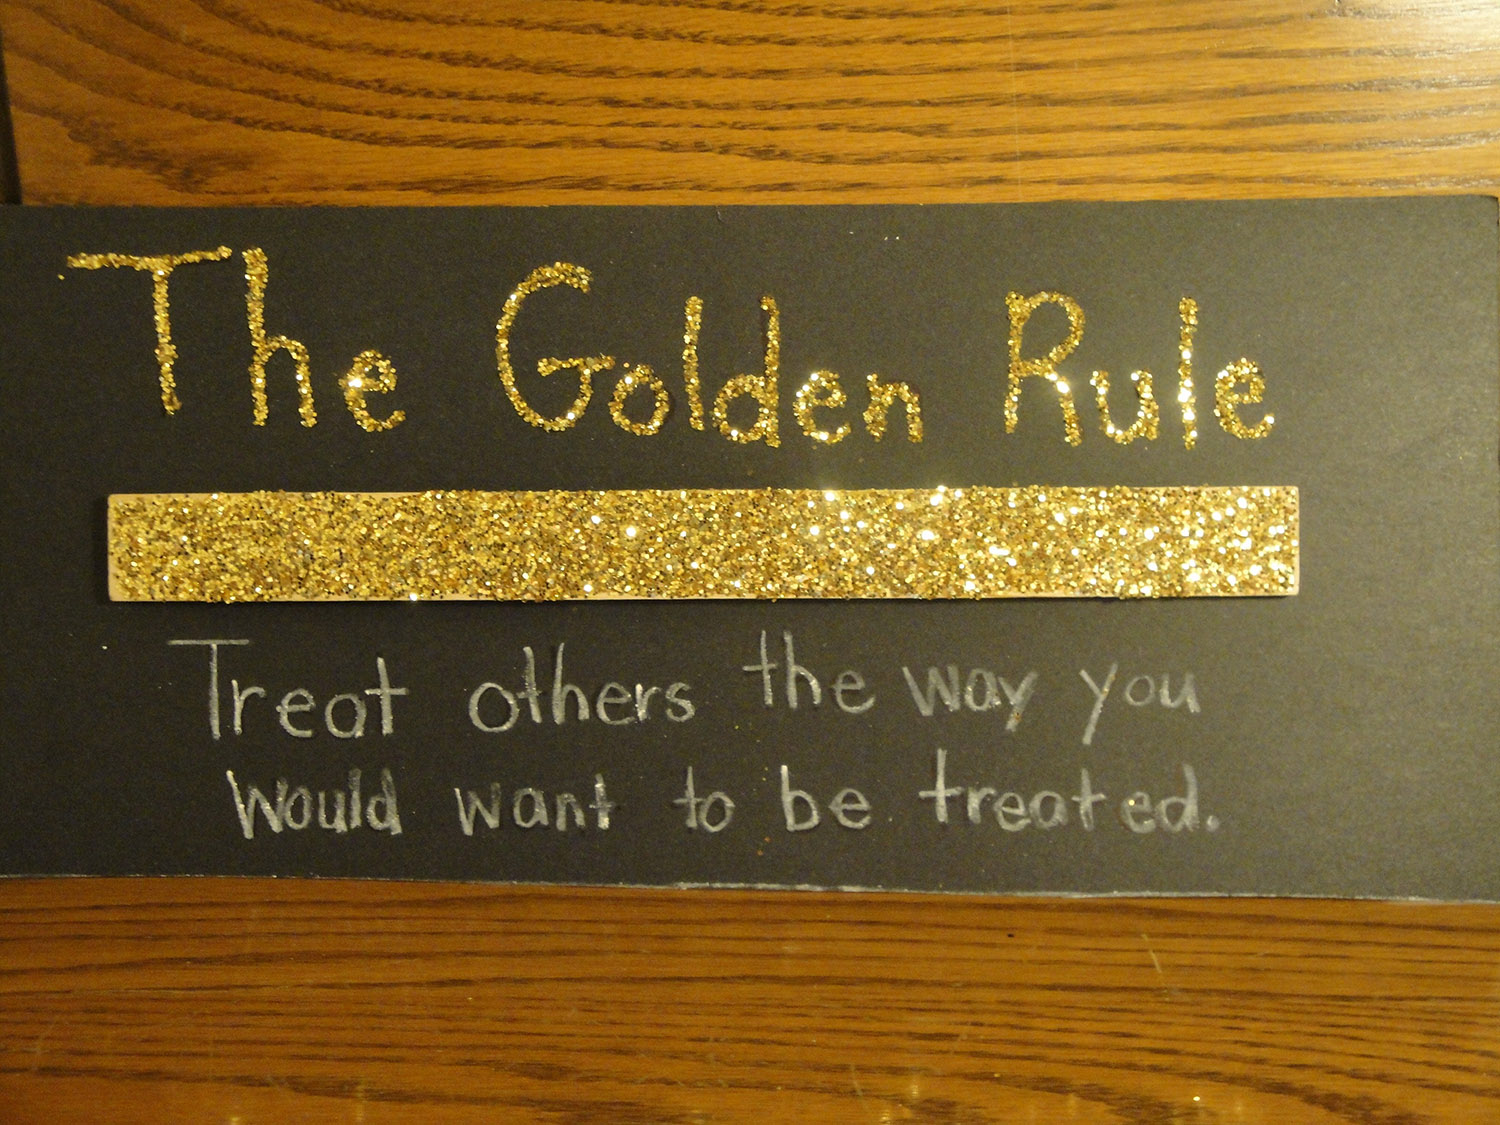 The Golden Rule
Treat others the way you
would want to be treated.